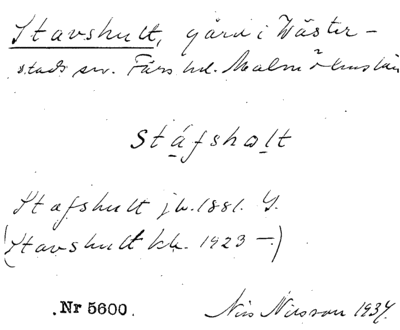 Stavshult, gård i Wäster-
stads sn. Färs hd. Malmöhus län
stáfshɷlt
Stafshult jb. 1881. G.
(Stavshult kk. 1923 —)
.Nr 5600.
Nils Nilsson 1934.